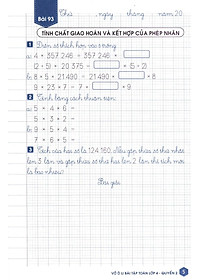 Bài 93
Thứ ....., ngày ..... tháng ..... năm 20
TÍNH CHẤT GIAO HOÁN VÀ KẾT HỢP CỦA PHÉP NHÂN
1 Điền số thích hợp vào ô trống.
a) 4 + 357 246 = 357 246 +
b) (12 + 5) + 20 375 = + (5 + 2)
c) 9 + 7 + 8 + 3 = 9 + 8 + 7 +
2 Tính bằng cách thuận tiện.
5 + 4 + 6 =
5 + 3 + 2 =
6 + 7 + 5 =
3 Tích của hai số là 124 160. Nếu gấp thừa số thứ nhất
lên 3 lần và gấp thừa số thứ hai lên 2 lần thì tích mới
là bao nhiêu?
Bài giải
VỞ Ô LI BÀI TẬP TOÁN LỚP 4 - QUYỂN 2
5